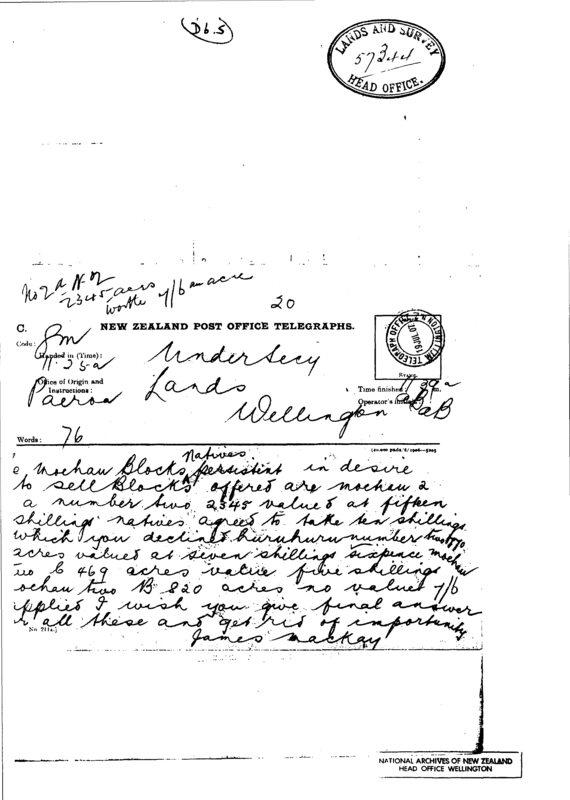 Db.5
LANDS AND SURVEY
57344
HEAD OFFICE.
No 2a No 2
2345 acres
worth 7/6 an acre
20
C. NEW ZEALAND POST OFFICE TELEGRAPHS.
Code:
Handed in (Time):
11.35a
Under Secy
TELEGRAPH OFFICE WELLINGTON N.Z.
Office of Origin and
Instructions:
Paeroa
Lands
Time finished
m.
Operator's initials
aB
Wellington
Words: 76
Natives
e Moehau Blocks persistent in desire
to sell Blocks offered are moehau 2
a number two 2345 valued at fifteen
shillings natives agreed to take ten shillings
which you declined huruhuru number two
acres valued at seven shillings sixpence moehau
two C 469 acres value five shillings
oehau two B 820 acres no value 7/6
applied I wish you give final answer
all these and get rid of importunity
James Mackay
NATIONAL ARCHIVES OF NEW ZEALAND
HEAD OFFICE WELLINGTON